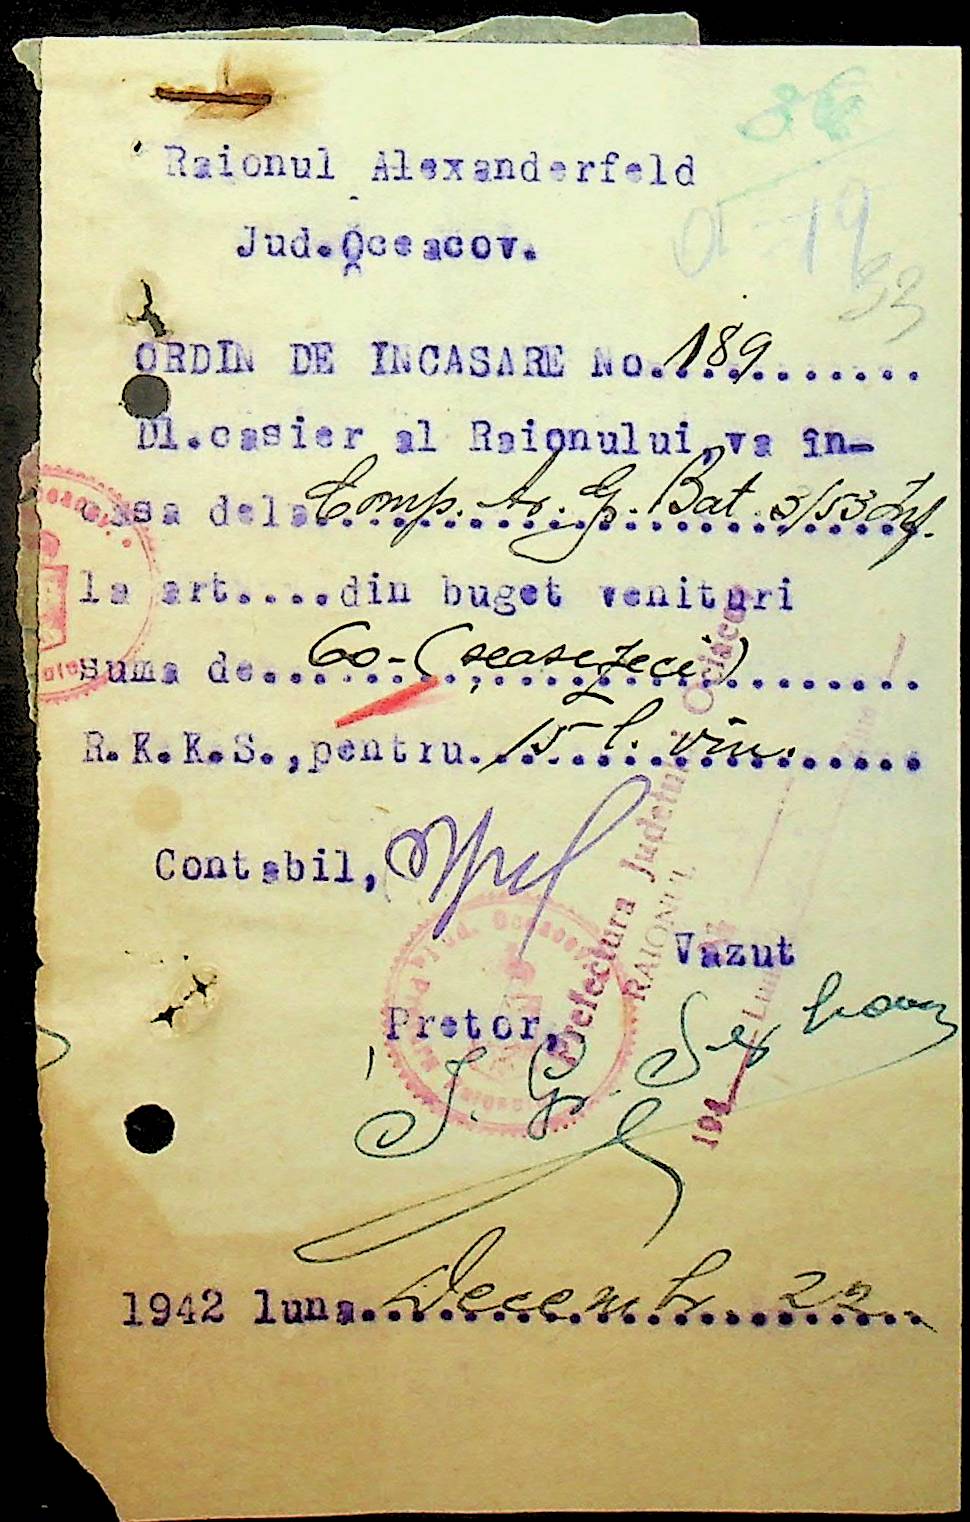 36
19
93
Raionul Alexanderfeld
Jud.Oceacov.
ORDIN DE INCASARE No. 189
Dl.casier al Raionului,va în-
casa dela Comp. Av. G. Bat 3/53 Inf.
la art....din buget venituri
suma de 60-(seasezeci)
R.K.K.S.,pentru 15 l. vin.
Contabil,
Vazut
Pretor,
Prefectura Judetului Oceacov
RAIONUL
194
Luna
1942 luna Decembr. 22